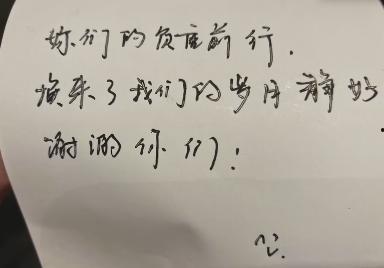 你们的负重前行，
换来了我们的岁月静好
谢谢你们！